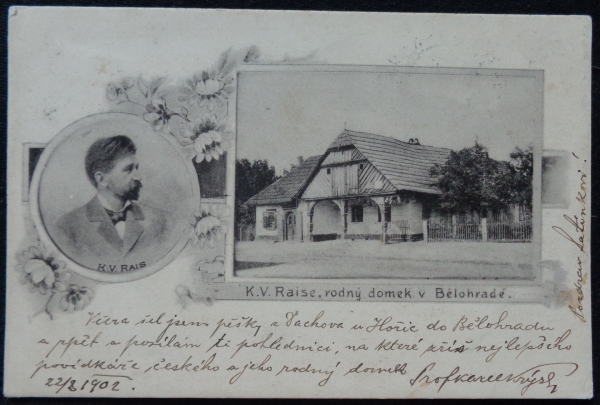 K.V. RAIS
K.V. Raise, rodný domek v Bělohradě.
Včera šel jsem pěšky z Dachova u Hořic do Bělohradu
a zpět a posílám ti pohlednici, na které zříš nejlepšího
povídkáře českého a jeho rodný domek
22/8 1902.
Pozdrav